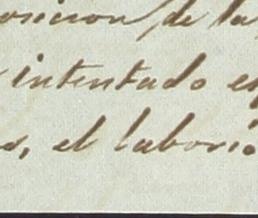 osicion de la
intentado es
s, el laborio